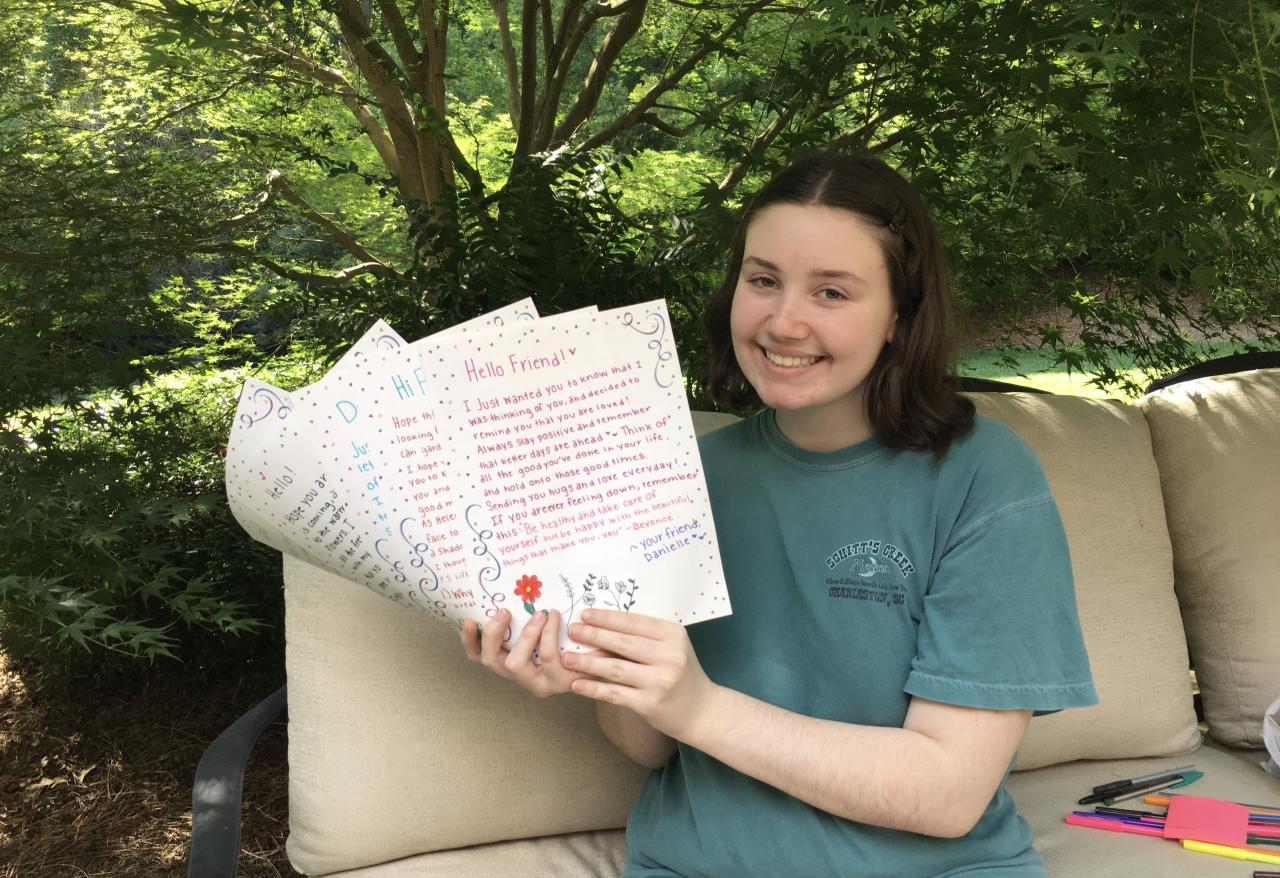 Hello!
Hope you ar
is coming, a
to the warm
flowers. I
D
Ju
let
of
I
Hi F
Hope th
looking
can gard
I hope
you to k
you and
good m
As Hele
face to
d Shad
I thou
Why
Hello Friend!
I Just wanted you to know that I
was thinking of you, and decided to
remind you that you are loved!
Always stay positive and remember
that better days are ahead Think of
all the good you've done in your life,
and hold onto those good times.
Sending you hugs and love everyday!
If you are ever feeling down, remember
this: "Be healthy and take care of
yourself, but be happy with the beautiful
things that make you, you" - Beyoncé
~ your friend,
Danielle
SCHITT'S CREEK
CHARLESTON, SC